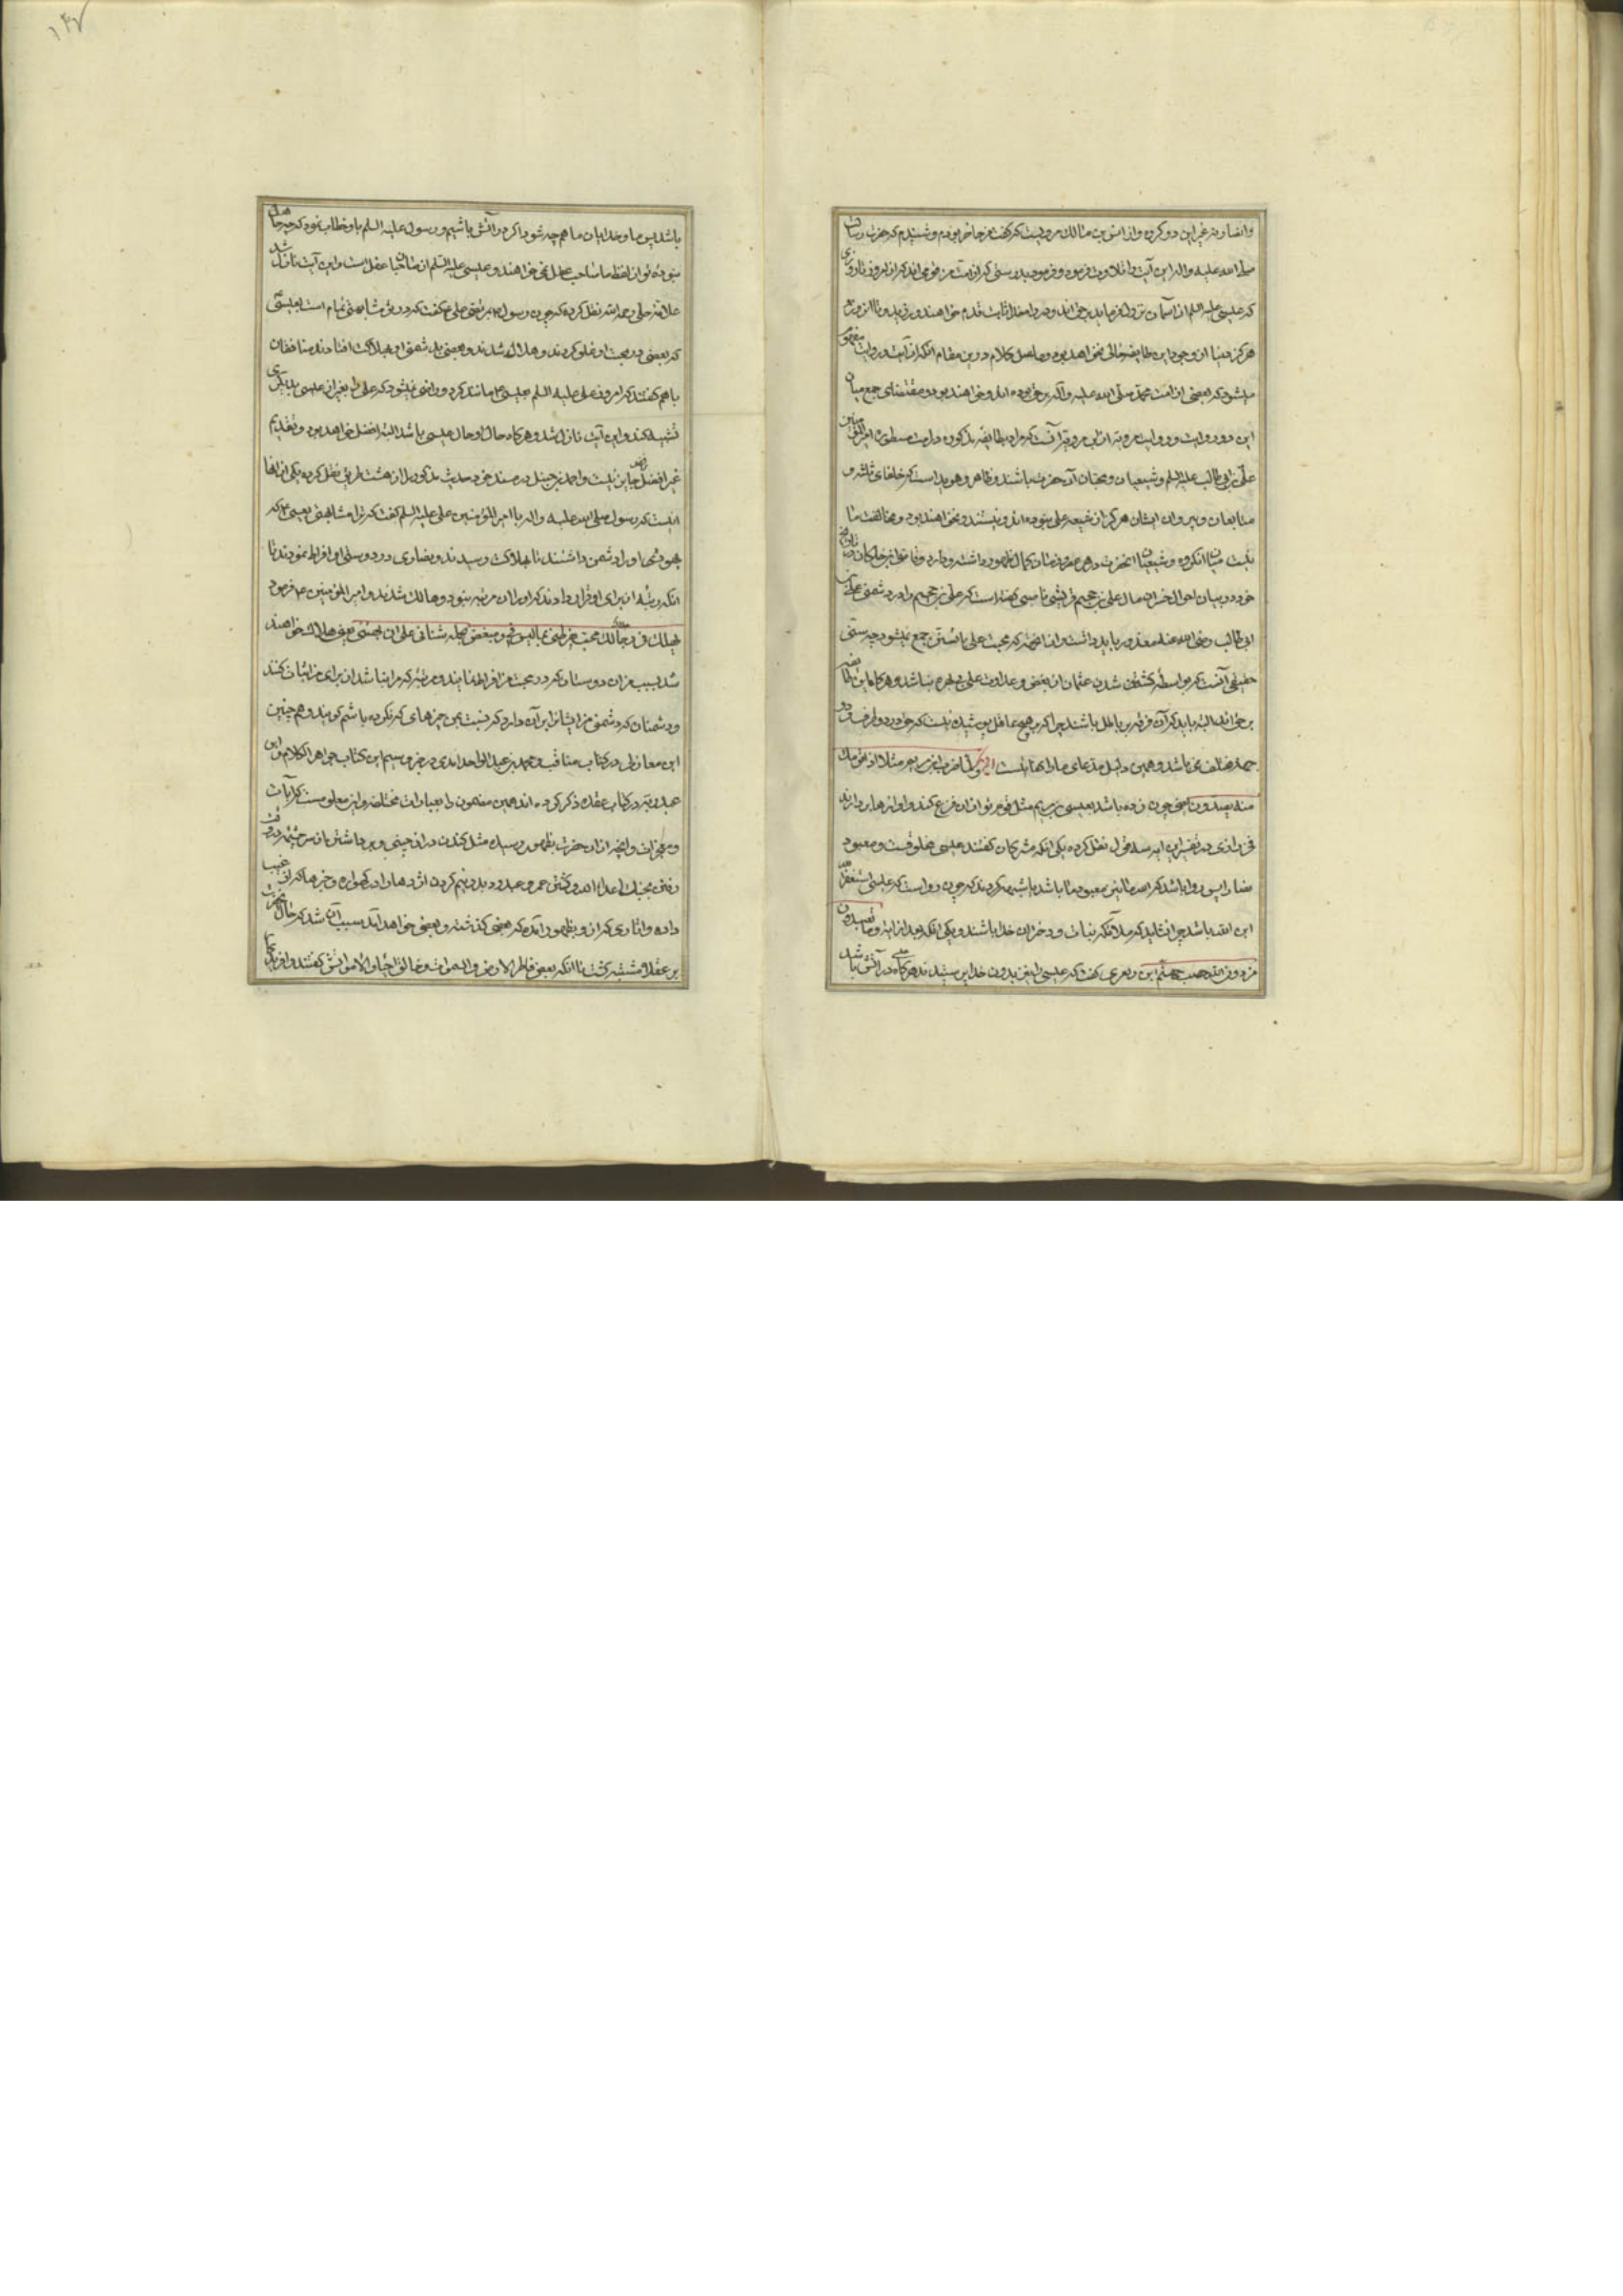 وانصار و نه غیر این دو کرده و از انس بن مالک مرویست که گفت من حاضر بودم و شنیدم که حضرت رسالت
صلی الله علیه واله این آیت را تلاوت فرمود و فرمود بدرستی که از امت من قومی اند که از امروز تا روزی
که عیسی علیه السلم از آسمان نزول فرماید بر حق اند و در راه خدا ثابت قدم خواهند بود
هرگز دنیا از وجود این طایفه خالی نخواهد بود و حاصل کلام درین مقام آنکه از آیت و روایت مفهوم
میشود که بعضی از امت محمد صلی الله علیه وآله بر حق بوده اند و خواهند بود و مقتضای جمع میان
این دو روایت و روایت مرویه از ابی مردویه آنست که مراد بطایفه مذکوره در امت مسطوره امیرالمؤمنین
علی بن ابی طالب علیه السلم و شیعیان و محبان آن حضرت باشند و ظاهر و هویداست که خلفای ثلثه و
متابعان و پیروان ایشان هرگز از شیعه علی نبوده اند و نیستند و نخواهند بود و مخالفت ما
بین میان آنکروه و شیعیان آنحضرت در هر عصر و زمان کمال ظهور داشته و دارد و قاضی ابن خلکان در تاریخ
خود در بیان احوال علی بن جهم قریشی ناصبی گفته است که علی بن جهم را در دشمنی علی بن
ابی طالب رضی الله عنه معذور باید داشت زیرا که محبت علی با تسنن جمع نمیشود چه سنی
حقیقی آنست که بواسطه کشته شدن عثمان از بغض و عداوت علی بی بهره نباشد و هرگاه این طایفه
بر حق اند البته باید که آن فرقه بر باطل باشند چرا که بر هیچ عاقل پوشیده نیست که حق در دو طرف و دو
جهة مختلف نمی باشد و همین دلیل مدعای ما را کفایتست ولما ضرب ابن مریم مثلا اذا قومک
منه یصدون یعنی چون زده باشد بعیسی بن مریم مثل قوم تو از ان فزع کنند و آوازها بردارند
فخر رازی در تفسیر این آیه سه قول نقل کرده یکی آنکه مشرکان گفتند عیسی مخلوقست و معبود
نصارا پس روا باشد که اصنام نیز معبود ما باشد
ابن الله باشد چرا نشاید که ملائکه بنات و دختران خدا باشند و یکی آنکه بعد از آیه وما تعبدون
من دون الله حصب جهنم ابن زبعری گفت که عیسی را نیز بدون خدا پرستیدند هرگاه در آتش باشد
باشد پس ما و خدایان ما هم چه شود اگر در آتش باشیم و رسول علیه السلم باو خطاب نمود که چه جاهل
بوده تو از لفظ ما صاحب عقل نمی خواهند و عیسی علیه السلم از صاحبان عقل است و این آیت نازل شد
علامه حلی رحمه الله نقل کرده که چون رسول بمرتضی علی گفت که در تو مشابهتی تمام است بعیسی
که بعضی در محبت او غلو کردند و هلاک شدند و بعضی بدشمنی او بهلاکت افتادند منافقان
باهم گفتند که امروز علی علیه السلم بعیسی مانند کرد و راضی نمیشود که علی را بغیر از عیسی بدیگری
تشبیه کند و این آیت نازل شد و هرگاه حال او حال عیسی باشد البته افضل خواهد بود و تقدیم
غیر افضل جایز نیست و احمد بن حنبل در مسند خود حدیث مذکور را از هشت طریق نقل کرده یکی از آنها
اینست که رسول صلی الله علیه واله با امیرالمؤمنین علی علیه السلم گفت که ترا مشابهتی بعیسی که
یهودش او را دشمن داشتند تا بهلاکت رسیدند و نصاری در دوستی او افراط نمودند تا
آنکه رتبه از برای او قرار دادند که او را آن مرتبه نبود و هالک شدند و امیرالمؤمنین فرمود
یهلک فی رجلان محب مفرط بما لیس فی و مبغض یحمله شنآنی علی ان یبهتنی یعنی هلاک خواهند
شد بسبب من آن دوستان که در محبت من افراط نمایند و مرتبه که مرا نباشد از برای من اثبات کنند
و دشمنان که دشمنی من ایشان را بر آن دارد که نسبت بمن چیزهای که نکرده باشم گویند و هم چنین
ابن مغازلی در کتاب مناقب و محمد بن عبد الواحد آمدی در جزو سیم این کتاب جواهر الکلام و ابن
عبدربه در کتاب عقد ذکر کرده اند همین مضمون را بعبارات مختلفه و این معلومست که آیات
و معجزات و آنچه از آن حضرت بظهور رسیده مثل کندن در از خیبر و برداشتن از سر چشمه
رفتن بجنک اعداء الله و کشتن عمرو عبدود بدو نیم کردن اژدها را در گهواره و خبرها که از غیب
داده و آثاری که از و بظهور آمده که بعضی گذشته و بعضی خواهد آمد سبب آن شد که حال آنحضرت
بر عقلا مشتبه گشت تا آنکه بعضی فاطر الارض والسموات و خالق الاحیاء والاموات گفتند